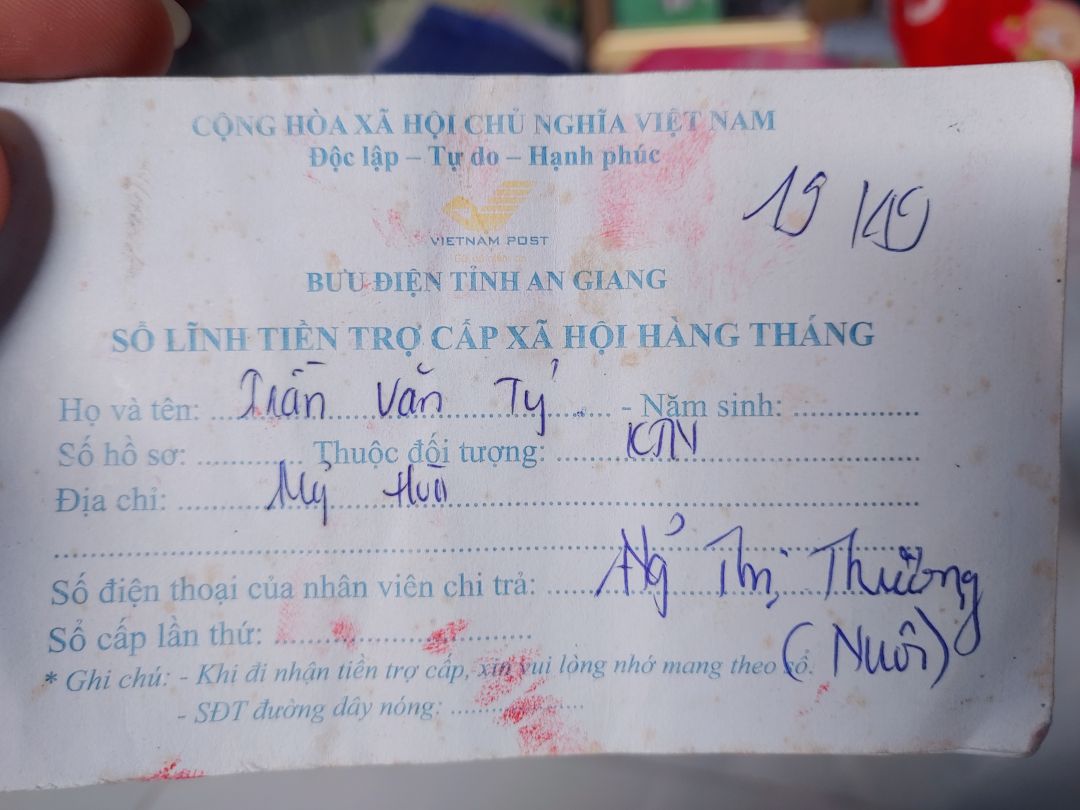 CỘNG HÒA XÃ HỘI CHỦ NGHĨA VIỆT NAM
Độc lập – Tự do – Hạnh phúc
19
VIETNAM POST
BƯU ĐIỆN TỈNH AN GIANG
SỔ LĨNH TIỀN TRỢ CẤP XÃ HỘI HÀNG THÁNG
Họ và tên: Trần Văn Tý - Năm sinh:
Số hồ sơ: Thuộc đối tượng:
Địa chỉ: Mỹ
Thị Thường
Số điện thoại của nhân viên chi trả:
Sổ cấp lần thứ:
(Nuôi)
* Ghi chú: - Khi đi nhận tiền trợ cấp, xin vui lòng nhớ mang theo sổ.
- SĐT đường dây nóng: